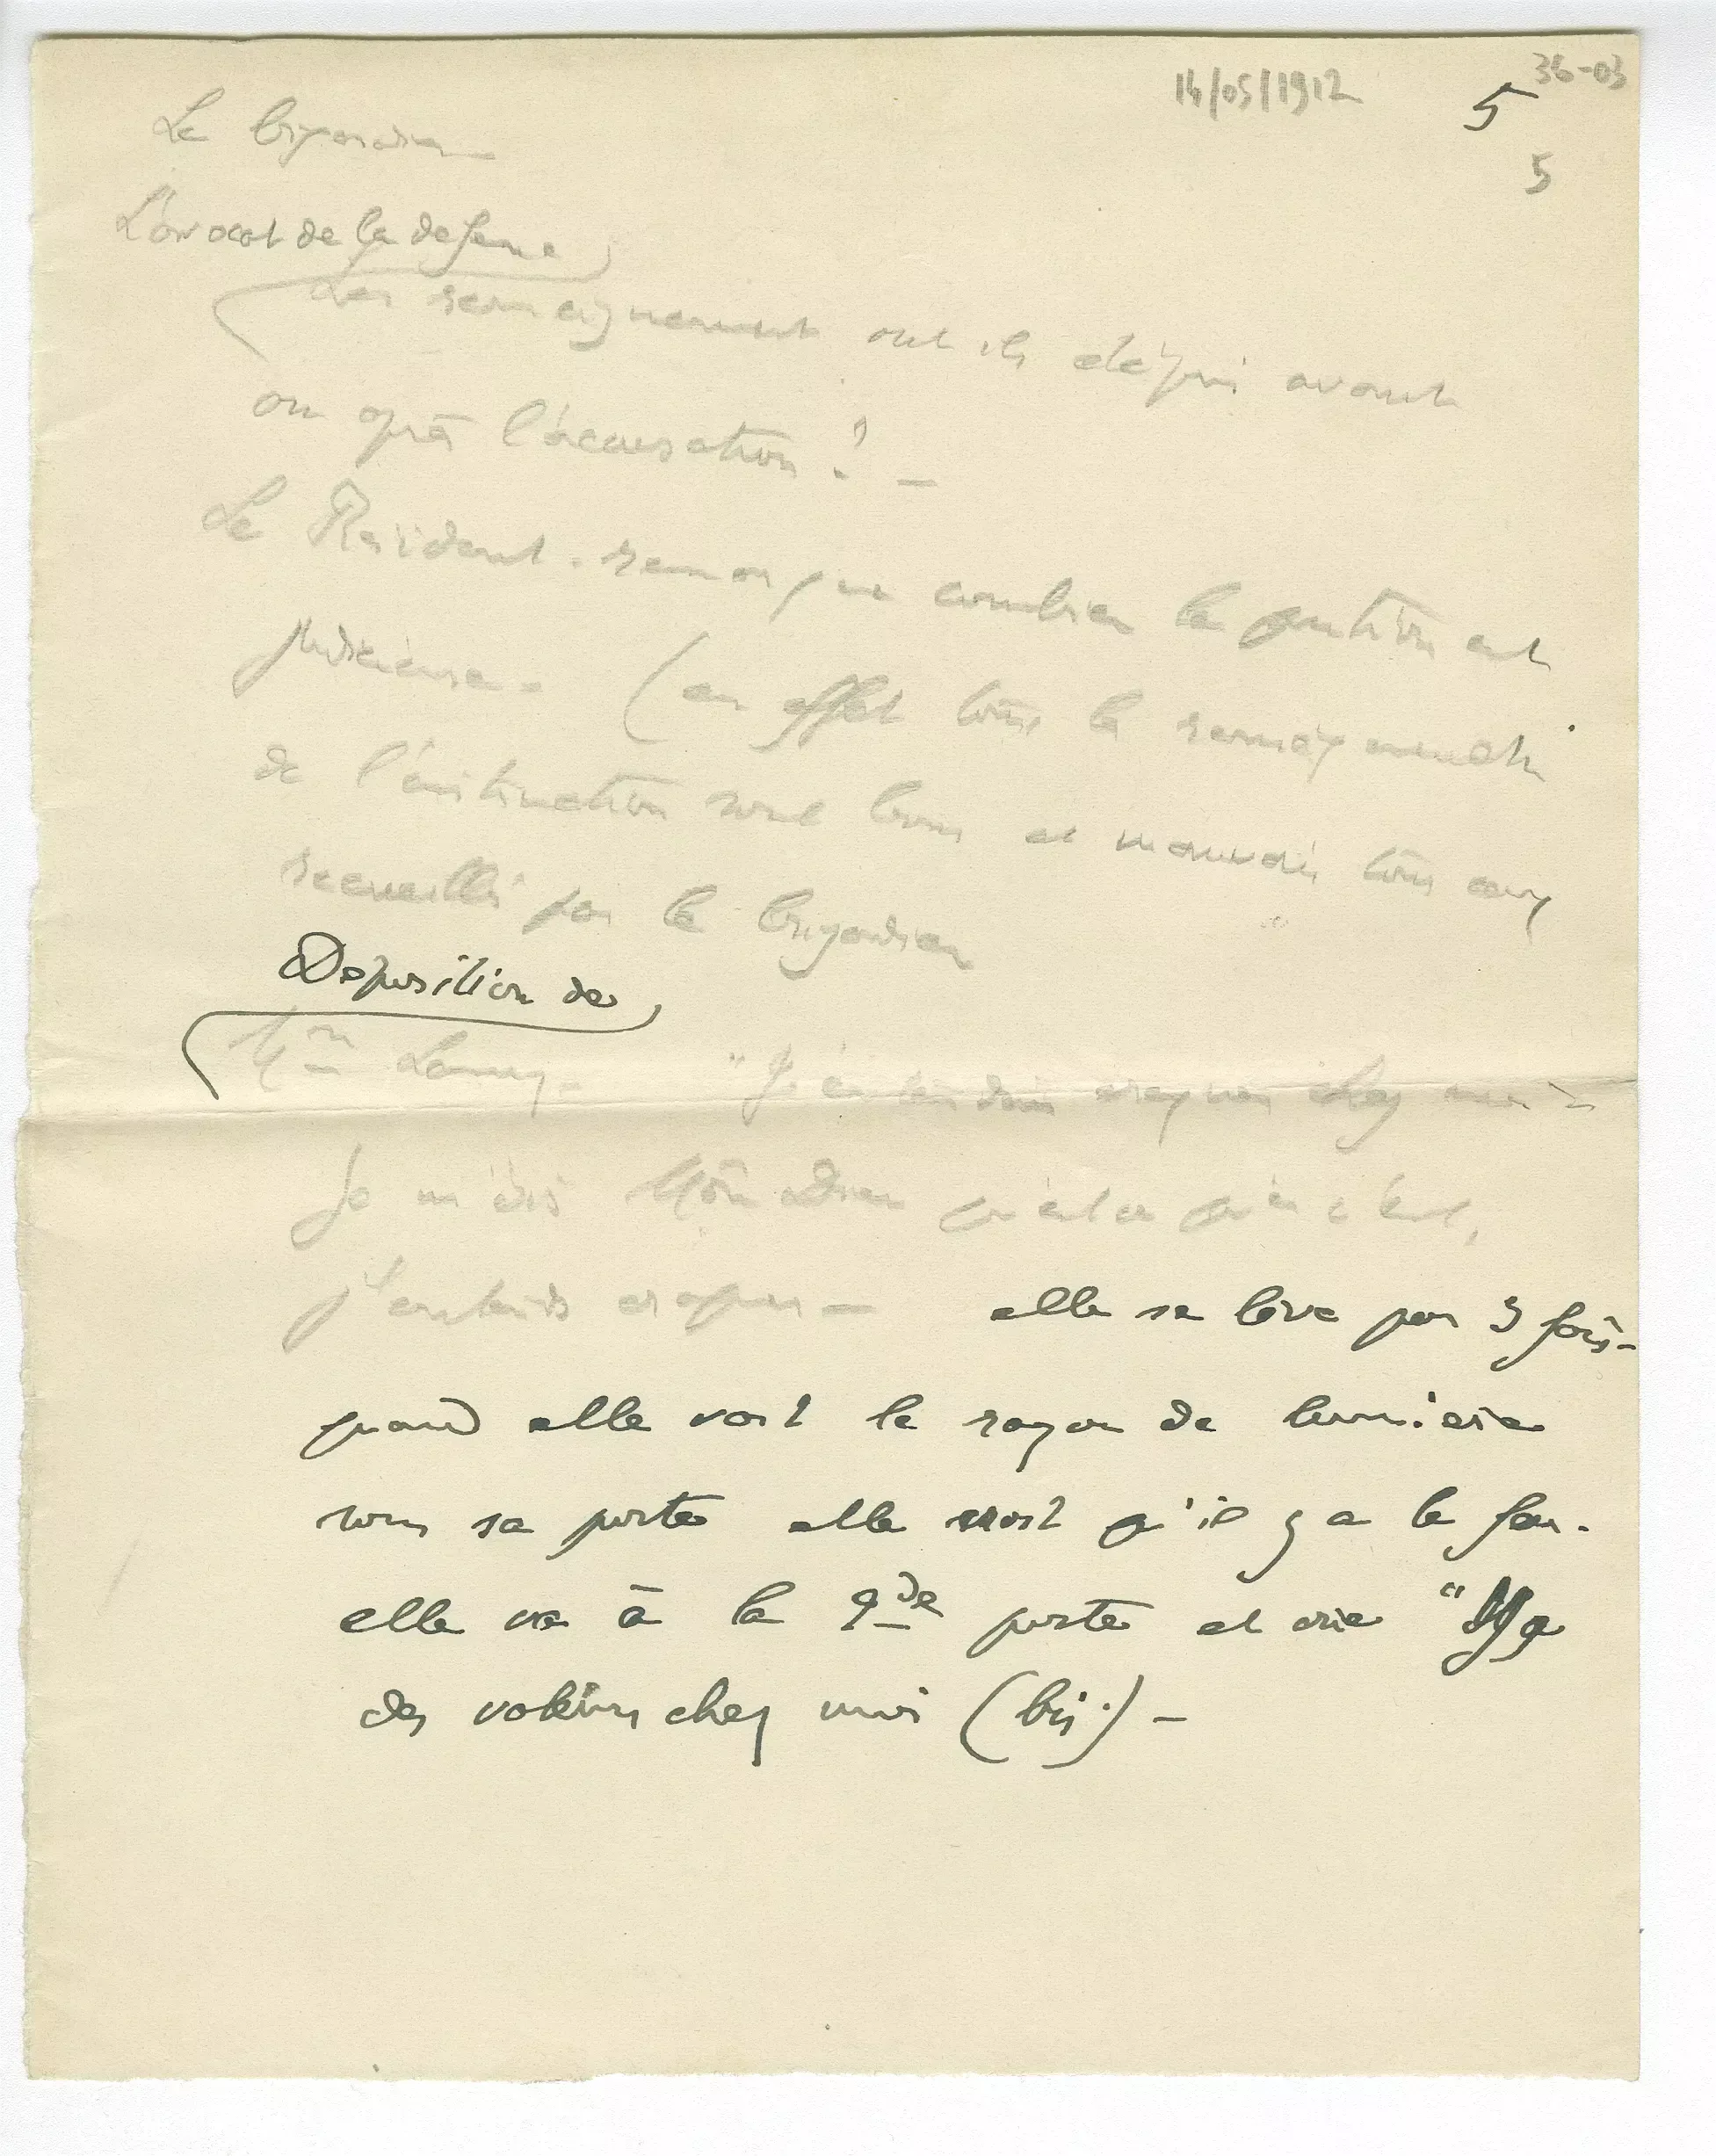 14/05/1912
36-03
5
5
Le brigadier
L'avocat de la defense
Les renseignements ont ils été pris avant
ou après l'accusation ? –
Le Président . remarque combien la question est
judicieuse – (en effet tous les renseignements
de l'instruction sont bons et mauvais tous ceux
recueillis par le brigadier
Deposition de
Mme Lamy – "J'entendais craquer chez moi –
Je me dis Mon Dieu qu'est ce que c'est,
j'entends craquer – elle se lève par 3 fois –
quand elle voit le rayon de lumiere
sous sa porte elle croit qu'il y a le feu .
elle va à la 2de porte et crie "Y a
des voleurs chez moi (bis.) –